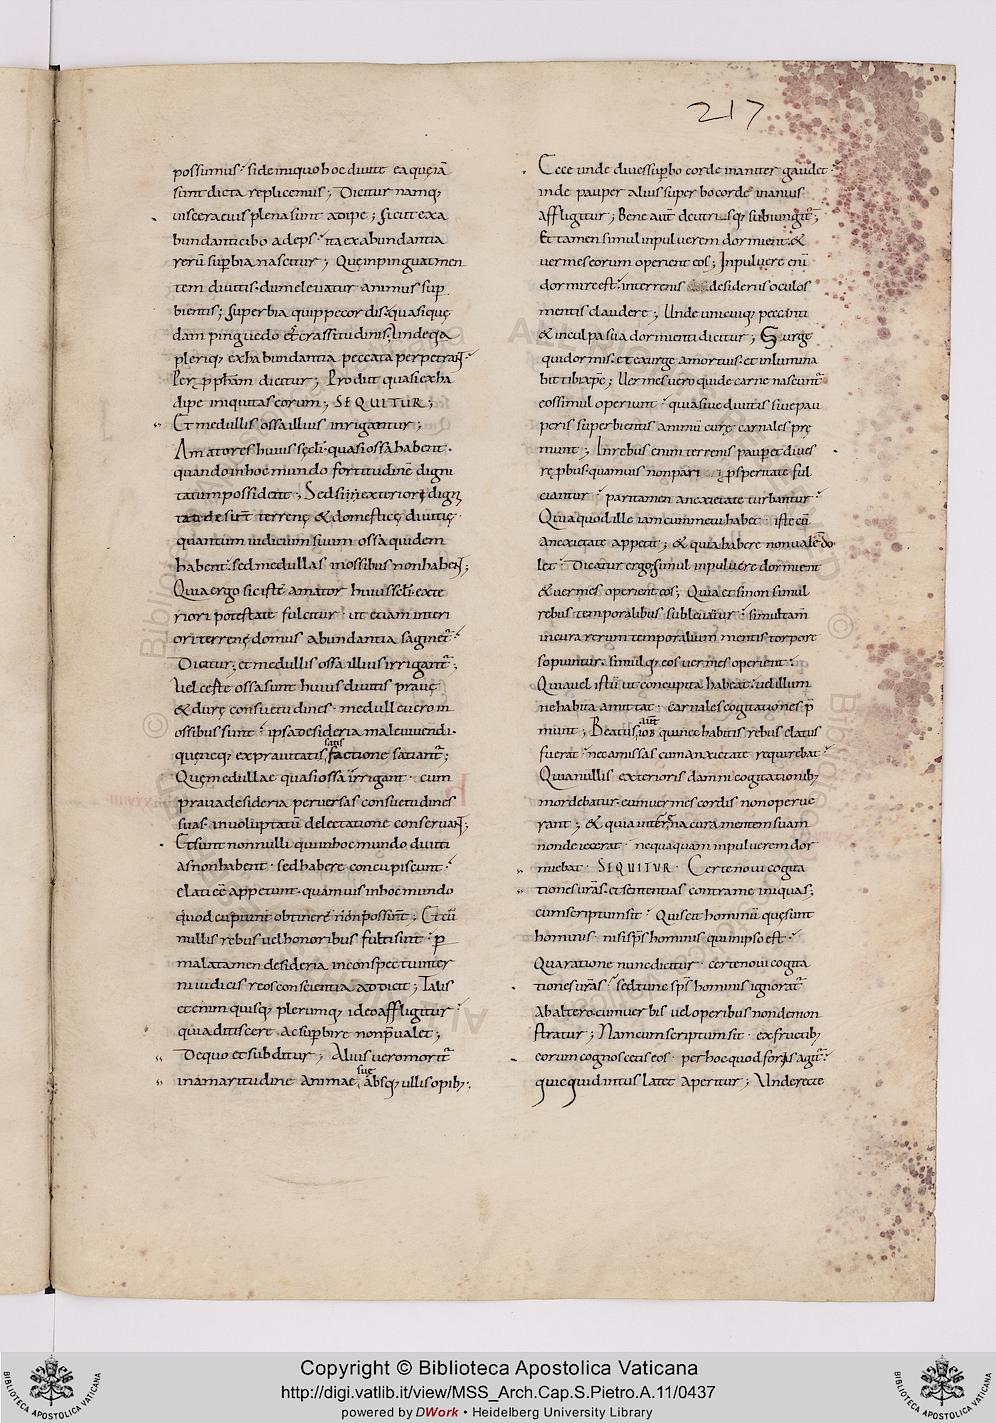 217
possumus; si de iniquo hoc diuite ea que iā
sunt dicta replicemus; Dicitur namq;
uiscera eius plena sunt adipe; Sicut ex a
bundanti cibo adeps; ita ex abundantia
rerū superbia nascitur; Quę inpinguat men
tem diuitis. dum eleuatur animus sup
bientis; Superbia quippe cordis. quasi quę
dam pinguedo ē crassitudinis. Unde q̄a
pleriq; ex habundantia peccata perpetrant;
Per p̄phām dicitur; Prodiit quasi ex ha
dipe iniquitas eorum; SEQUITUR;
Et medullis ossa illius inrigantur;
Amatores huius sęcli. quasi ossa habent.
quando in hoc mundo fortitudinē digni
tatum possident; Sed si in exteriori dign
terrenę & domesticę diuitię.
quantum iudicium suum ossa quidem
habent. sed medullas in ossibus non habent;
Quia ergo sic iste amator huius sęcli. exte
riori potestate fulcitur. ut etiam interi
ori terrenę domus abundantia saginet̄.
Dicitur; et medullis ossa illius irrigant̄;
Uel certe ossa sunt huius diuitis prauę
& durę consuetudines. medullę uero in
ossibus sunt. ipsa desideria male uiuendi.
quę neq; ex prauitatis satisfactione satiant̄;
Quę medullae quasi ossa irrigant. cum
praua desideria peruersas consuetudines
suas. in uoluptatū delectatione conseruant;
Et sunt nonnulli qui in hoc mundo diuiti
as non habent. sed habere concupiscunt.
elati eē appetunt. quamuis in hoc mundo
quod cupiunt obtinere non possint; Et cū
nullis rebus uel honoribus fulti sint. p
mala tamen desideria in conspectu inter
ni iudicis reos conscientia addicit; Talis
etenim quisq; plerumq; ideo affligitur.
quia ditiscere ac superbire non p̄ualet;
De quo et subditur; Alius uero morit̄
in amaritudine animae suę absq; ullis opib;
Ecce unde diues superbo corde inaniter gaudet.
inde pauper alius superbo corde inanius
affligitur; Bene aut̄ de utrisq; subiungit̄;
Et tamen simul in puluerem dormient. &
uermes eorum operient eos; In puluere enī
dormire est. in terrenis desideriis oculos
mentis claudere; Unde unicuiq; peccanti
& in culpa sua dormienti dicitur; Surge
qui dormis. et exurge a mortuis. et inlumina
bit tibi xpc; Uermes uero qui de carne nascunt̄
eos simul operiunt. quia siue diuitis siue pau
peris superbientis animū curę carnales prę
munt; In rebus enim terrenis pauper et diues
rę prbus. quamuis non pari prosperitate ful
ciantur. pari tamen anxietate turbantur.
Quia quod ille iam cum metu habet. iste cū
anxietate appetit; & quia habere non ualet do
let. Dicatur ergo; simul in puluere dormient
& uermes operient eos; Quia etsi non simul
rebus temporalibus subleuantur. simul tam̄
in cura rerum temporalium mentis torpore
sopiuntur. simulq; eos uermes operient.
Quia uel istū ut concupita habeat. uel illum
ne habita amittat. carnales cogitationes p̄
munt; Beatus aut̄ iob qui nec habitis rebus elatus
fuerat. nec amissas cum anxietate requirebat.
Quia nullis exterioris damni cogitationib;
mordebatur. eum uermes cordis non operue
rant; & quia in terrena cura mentem suam
non deiecerat. nequaquam in puluerem dor
miebat. SEQUITUR. Certe noui cogita
tiones urās. et sententias contra me iniquas;
cum scriptum sit. Quis scit hominū quę sunt
hominis. nisi sp̄s hominis qui in ipso est.
Qua ratione nunc dicitur. certe noui cogita
tiones urās. sed tunc sp̄s hominis ignorat̄
ab altero. cum uerbis uel operibus non demon
stratur; Nam cum scriptum sit. ex fructib;
eorum cognoscetis eos. per hoc quod foris agit̄.
quicquid intus latet aperitur; Unde recte
Copyright © Biblioteca Apostolica Vaticana
http://digi.vatlib.it/view/MSS_Arch.Cap.S.Pietro.A.11/0437
powered by DWork • Heidelberg University Library
BIBLIOTECA APOSTOLICA VATICANA
BIBLIOTECA APOSTOLICA VATICANA